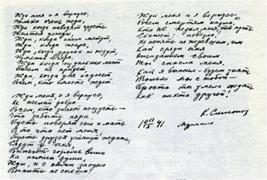 Жди меня и я вернусь,
Только очень жди,
Жди когда наводят грусть
Желтые дожди,
Жди, когда снега метут,
Жди когда жара,
Жди, когда других не ждут,
Жди, когда из дальних мест
Писем не придет,
Жди, когда уж надоест
Всем, кто вместе ждет.
Жди меня, и я вернусь,
Не желай добра
Всем, кто знает наизусть
Что забыть пора
Пусть поверят сын и мать
В то что нет меня,
Пусть друзья устанут ждать,
Сядут у огня
горькое вино
На помин души,
Жди, и с ними заодно
не спеши
Жди меня и я вернусь,
Всем смертям назло
Кто не ждал меня, тот пусть
Скажет: повезло,
Как среди огня
Ожиданием своим
Ты спасла меня,
Как я выжил – будем знать
Только мы с тобой –
Просто ты умела ждать
Как никто другой.
К. Симонов
41